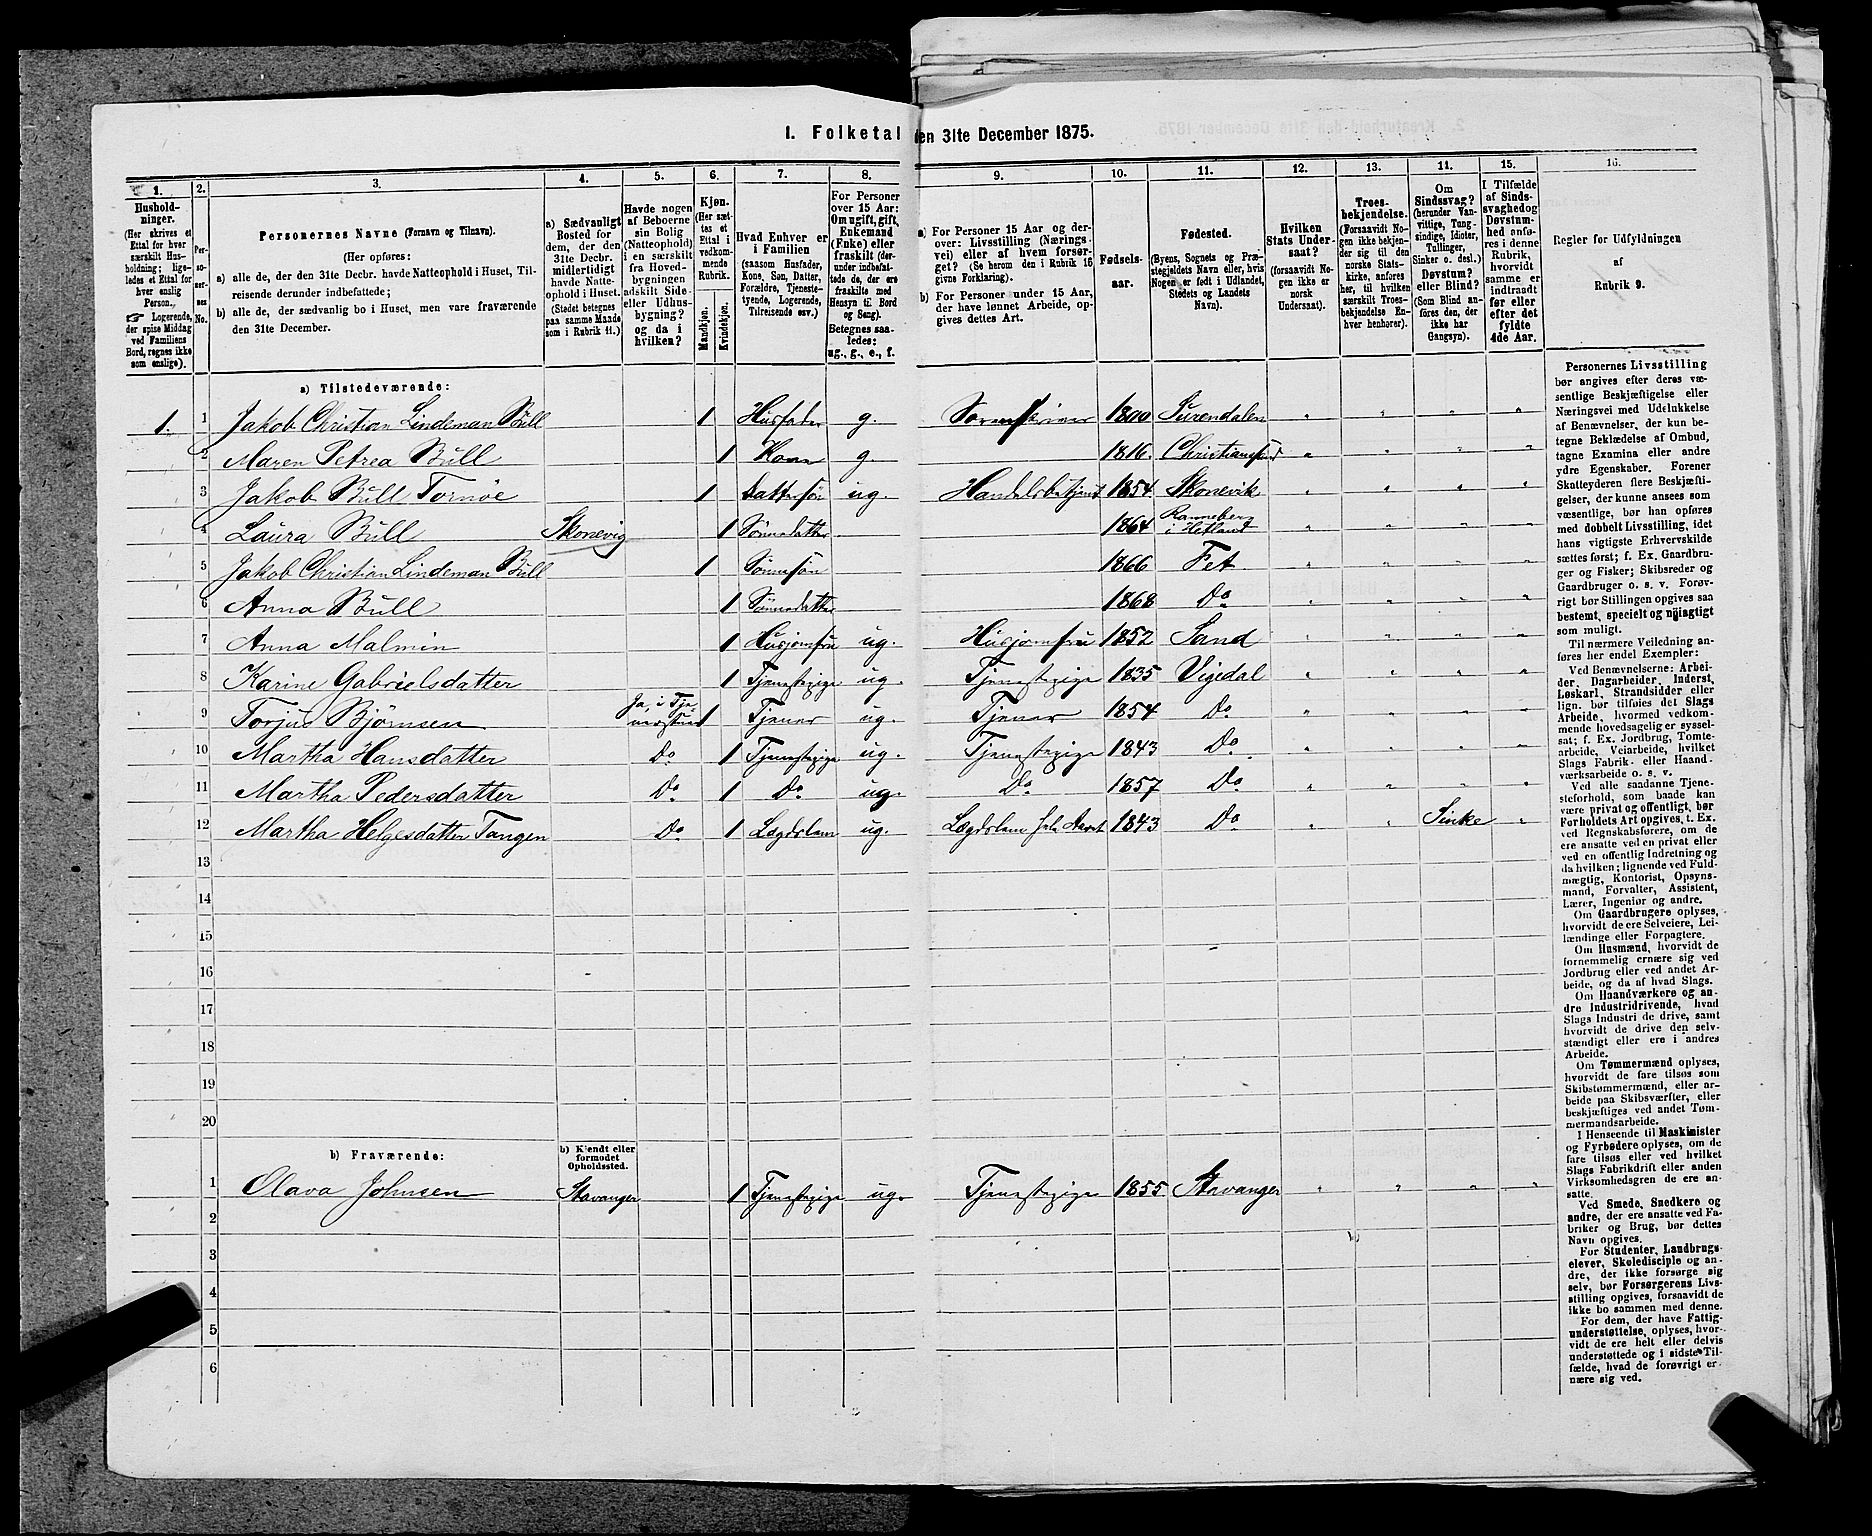 1. Folketal den 31te December 1875.
1. 2. 3. 4. 5. 6. 7. 8. 9. 10. 11. 12. 13. 11. 15. 16.
Husholdninger.
(Her skrives et
Ettal for hver
særskilt Husholdning; ligeledes
et Ettal for
hver enslig
Person.
☞ Logerende,
der spise Middag
ved Familiens
Bord, regnes ikke
som enslige).
Personernes No.
Personernes Navne (Fornavn og Tilnavn).
(Her opføres:
a) alle de, der den 31te Decbr. havde Natteophold i Huset, Tilreisende
derunder indbefattede;
b) alle de, der sædvanlig bo i Huset, men vare fraværende
den 31te December.
a) Sædvanligt
Bosted for
dem, der den
31te Decbr.
midlertidigt
havde Natteophold
i Huset.
(Stedet betegnes
paa samme Maade
som i Rubrik 11.)
Havde nogen
af Beboerne
sin Bolig
(Natteophold)
i en særskilt
fra Hovedbygningen
adskilt Side-
eller Udhusbygning?
og da i
hvilken?
Kjøn.
(Her sættes
et
Ettal i
vedkommende
Rubrik.
Mandkjøn.
Kvindekjøn.
Hvad Enhver er
i Familien
(saasom Husfader,
Kone, Søn, Datter,
Forældre, Tjenestetyende,
Logerende,
Tilreisende osv.)
For Personer
over 15 Aar:
Om ugift, gift,
Enkemand
(Enke) eller
fraskilt (derunder
indbefattede
de, der ere
fraskilte med
Hensyn til Bord
og Seng).
Betegnes saaledes:
ug., g., e., f.
a) For Personer 15 Aar og derover:
Livsstilling (Næringsvei)
eller af hvem forsørget?
(Se herom den i Rubrik 16
givne Forklaring).
b) For Personer under 15 Aar,
der have lønnet Arbeide, opgives
dettes Art.
Fødselsaar.
Fødested.
(Byens, Sognets og Præstegjeldets
Navn eller, hvis
Nogen er født i Udlandet,
Stedets og Landets
Navn).
Hvilken
Stats Undersaat?
(forsaavidt Nogen
ikke er
norsk
Undersaat).
Troesbekjendelse.
(Forsaavidt Nogen
ikke bekjender
sig til den
norske Statskirke,
anføres
her, til hvilken
særskilt Troesbekjendelse
Enhver
henhører).
Om
Sindssvag?
(herunder Vanvittige,
Tungsindige,
Idioter,
Tullinger,
Sinker o. desl.)
Døvstum?
eller Blind?
(Som Blind anføres
den, der
ikke har
Gangsyn).
I Tilfælde
af Sindssvaghed
og
Døvstumhed
anføres
i denne
Rubrik,
hvorvidt
samme er
indtraadt
før eller
efter det
fyldte
4de Aar.
Regler for Udfyldningen
af
Rubrik 9.
a) Tilstedeværende:
1. 1 Jakob Christian Lindeman Bull 1 Husfader g. Sorenskriver 1800 Surendalen " " " "
2 Maren Petrea Bull 1 Kone g. 1816. Christiansund " " " "
3 Jakob Bull Tornöe 1 Dattersön ug. Handelsbetjent 1854. Skonevik " " " "
4 Laura Bull Skonevig 1 Sönnedatter 1864 Ranneberg i Hetland " " " "
5 Jakob Christian Lindeman Bull 1 Sönnesön 1866 Fet " " " "
6 Anna Bull 1 Sönnedatter 1868 Do " " " "
7 Anna Malmin 1 Husjomfru ug. Husjomfru 1852 Sand " " " "
8 Karine Gabrielsdatter 1 Tjenestepige ug. Tjenestepige 1835 Vigedal " " " "
9 Torjus Björnsen Ja, i Tjenerstuen 1 Tjener ug. Tjener 1854 Do " " " "
10 Martha Hansdatter Do 1 Tjenestepige ug. Tjenestepige 1843 Do " " " "
11 Martha Pedersdatter Do 1 Do ug. Do 1857 Do " " " "
12 Martha Helgesdatter Tangen Do 1 Lægdslem ug. Lægdslem hele Aaret 1843 Do " " Sinke "
13
14
15
16
17
18
19
20
b) Fraværende:
b) Kjendt eller
formodet
Opholdssted.
1 Olava Johnsen Stavanger 1 Tjenestepige ug. Tjenestepige 1855 Stavanger " " " "
2
3
4
5
6
Personernes Livsstilling
bør angives efter deres væsentlige
Beskjæftigelse eller
Næringsvei med Udelukkelse
af Benævnelser, der kun betegne
Beklædelse af Ombud,
tagne Examina eller andre
ydre Egenskaber. Forener
Skatteyderen flere Beskjæftigelser,
der kunne ansees som
væsentlige, bør han opføres
med dobbelt Livsstilling, idet
hans vigtigste Erhvervskilde
sættes først; f. Ex. Gaardbruger
og Fisker; Skibsreder og
Gaardbruger o. s. v. Forøvrigt
bør Stillingen opgives saa
bestemt, specielt og nøiagtigt
som muligt.
Til nærmere Veiledning anføres
her endel Exempler:
Ved Benævnelserne: Arbeider,
Dagarbeider, Inderst,
Løskarl, Strandsidder eller
lign. bør tilføies det Slags
Arbeide, hvormed vedkommende
hovedsagelig er sysselsat;
f. Ex. Jordbrug, Tomtearbeide,
Veiarbeide, hvilket
Slags Fabrik- eller Haandværksarbeide
o. s. v.
Ved alle saadanne Tjenesteforhold,
som baade kan
være privat og offentligt, bør
Forholdets Art opgives, t. Ex.
ved Regnskabsførere, om de
ere ansatte ved en privat eller
ved en offentlig Indretning og
da hvilken; lignende ved Fuldmægtig,
Kontorist, Opsynsmand,
Forvalter, Assistent,
Lærer, Ingeniør og andre.
Om Gaardbrugere oplyses,
hvorvidt de ere Selveiere, Leilændinge
eller Forpagtere.
Om Husmænd, hvorvidt de
fornemmelig ernære sig ved
Jordbrug eller ved andet Arbeide,
og da af hvad Slags.
Om Haandværkere og andre
Industridrivende, hvad
Slags Industri de drive, samt
hvorvidt de drive den selvstændigt
eller ere i andres
Arbeide.
Om Tømmermænd oplyses,
hvorvidt de fare tilsøs som
Skibstømmermænd, eller arbeide
paa Skibsværfter, eller
beskjæftiges ved andet Tømmermandsarbeide.
I Henseende til Maskinister
og Fyrbødere oplyses, om de
fare tilsøs eller ved hvilket
Slags Fabrikdrift eller anden
Virksomhedsgren de ere ansatte.
Ved Smede, Snedkere og
andre, der ere ansatte ved Fabriker
og Brug, bør dettes
Navn opgives.
For Studenter, Landbrugselever,
Skoledisciple og andre,
der ikke forsørge sig
selv, bør Forsørgerens Livsstilling
opgives, forsaavidt de
ikke bo sammen med denne.
For dem, der have Fattigunderstøttelse,
oplyses, hvorvidt
de ere helt eller delvis
understøttede og i sidste Tilfælde,
hvad de forøvrigt ernære
sig ved.